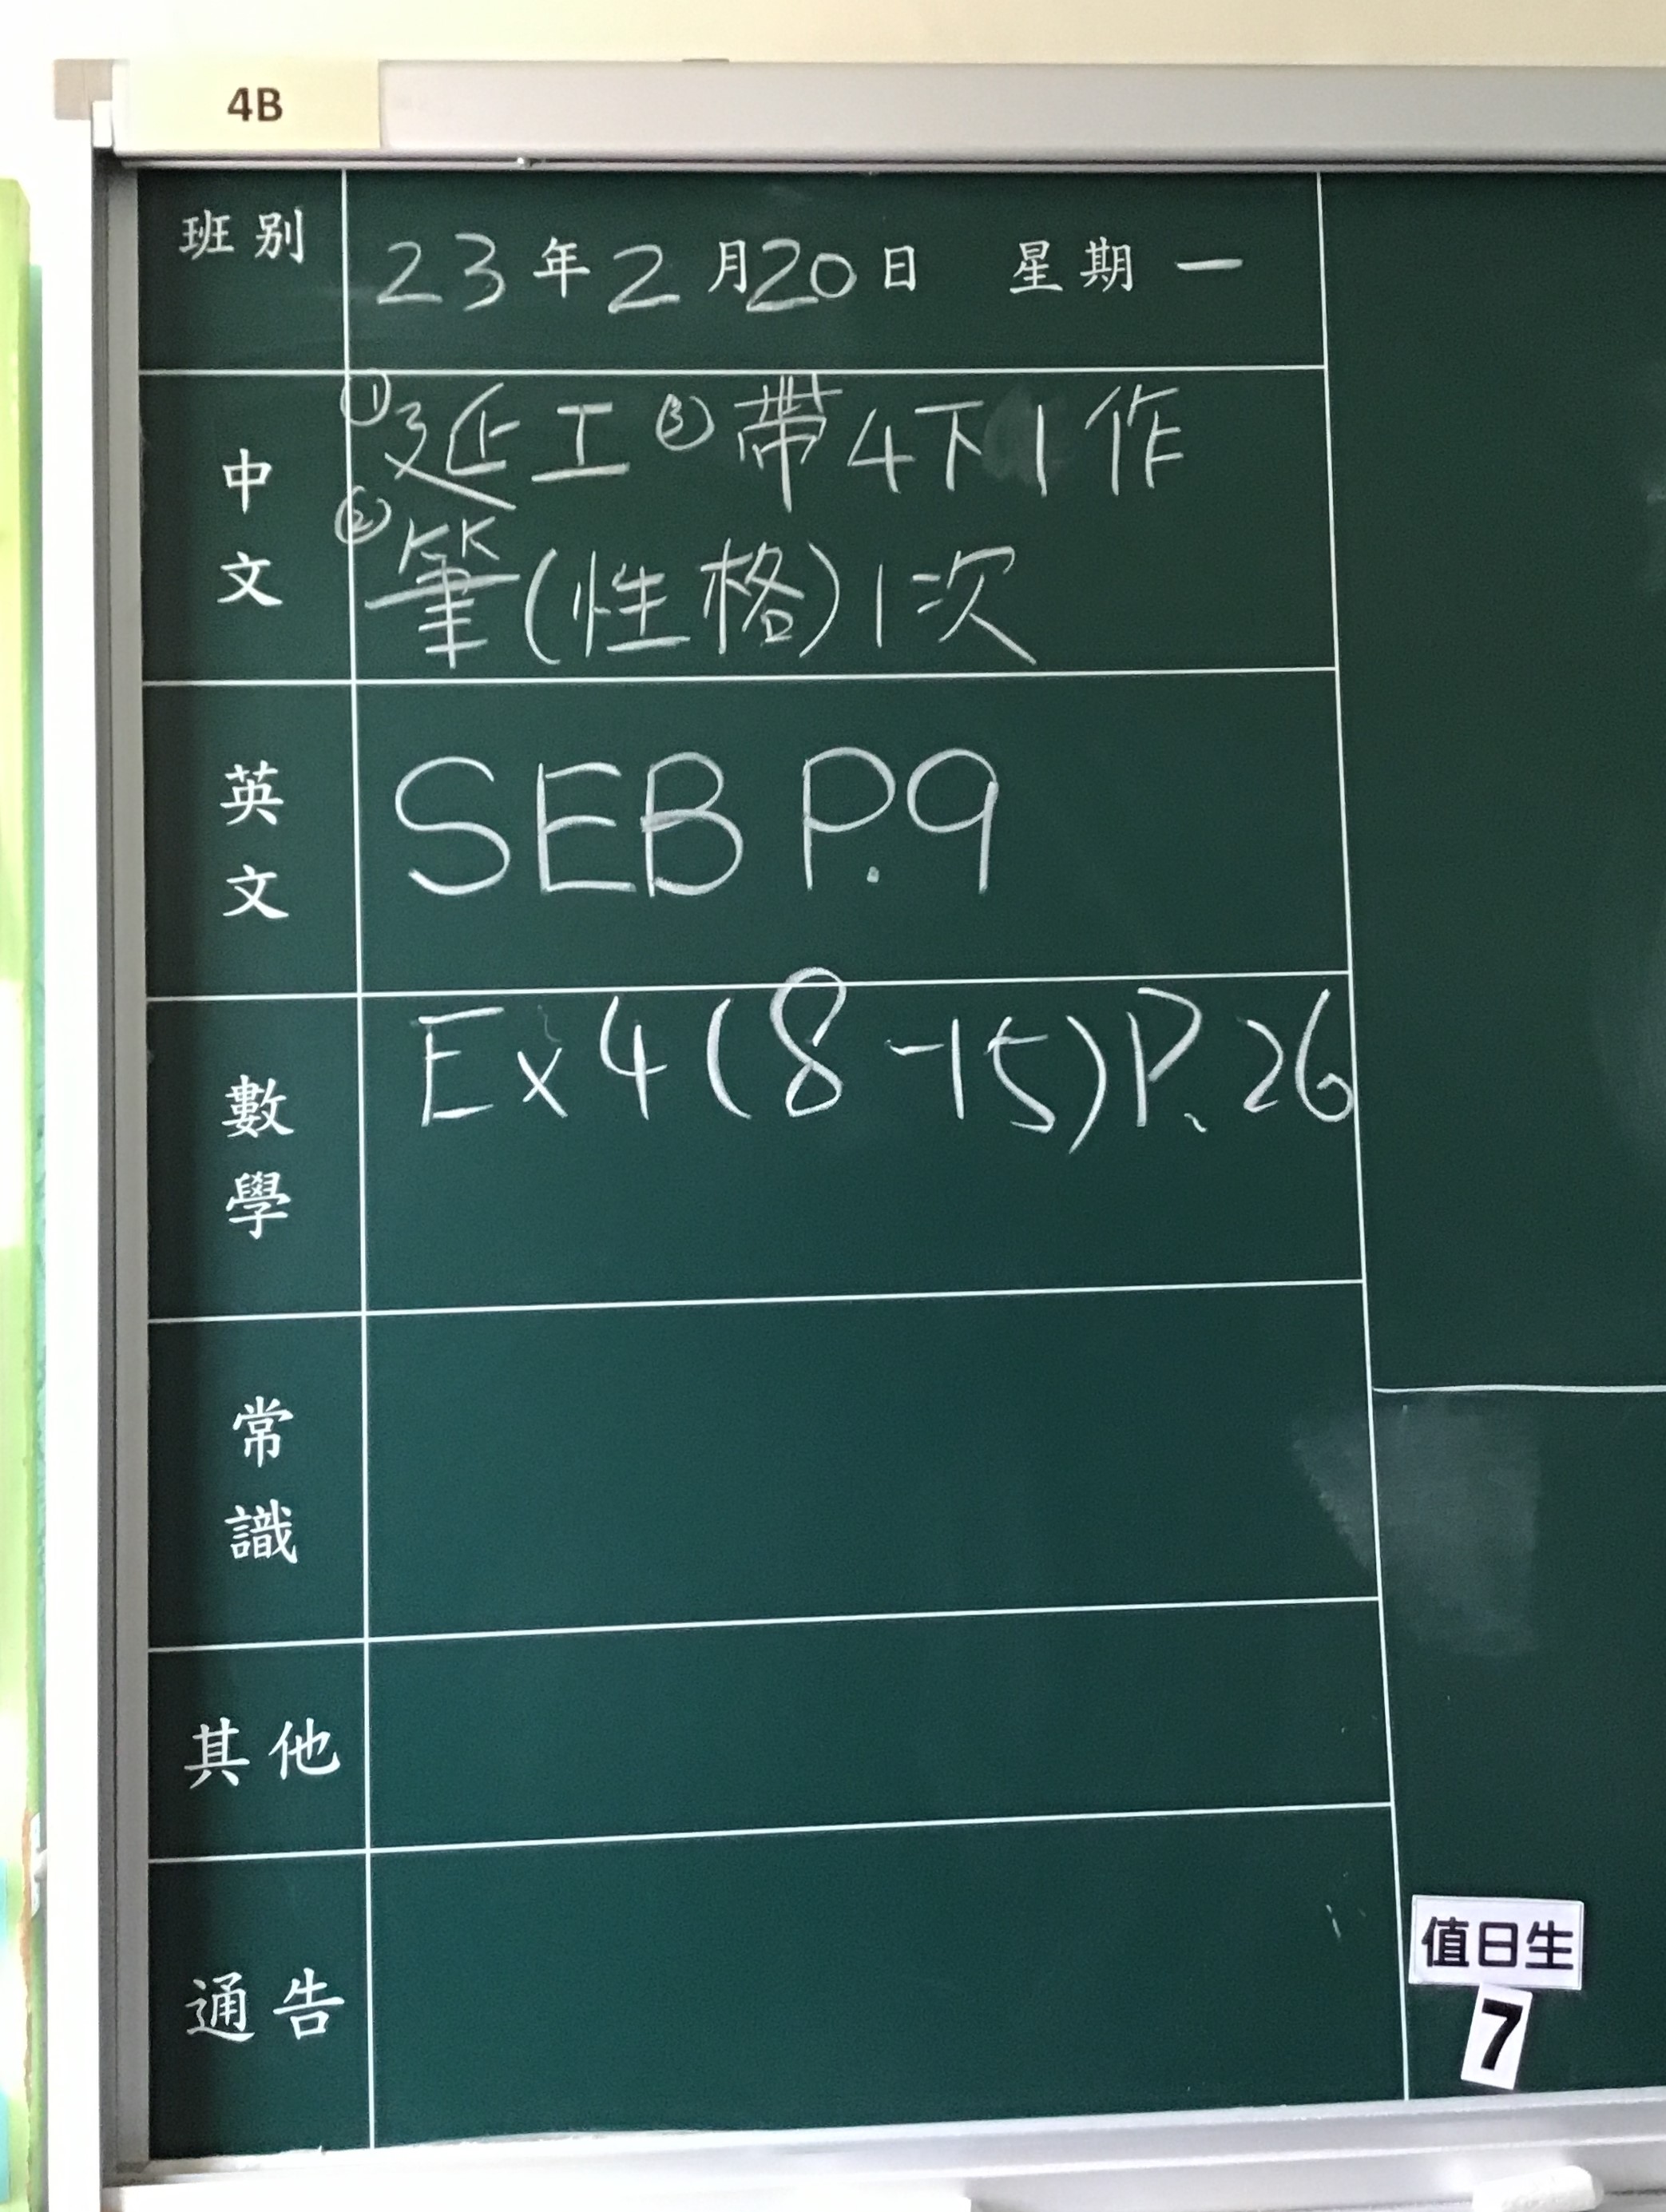 4B
班別 23年2月20日 星期一
中文 ①延工 ③帶4下1作
②筆(性格)1次
英文 SEB P.9
數學 Ex4(8-15)P.26
常識
其他
通告
值日生
7